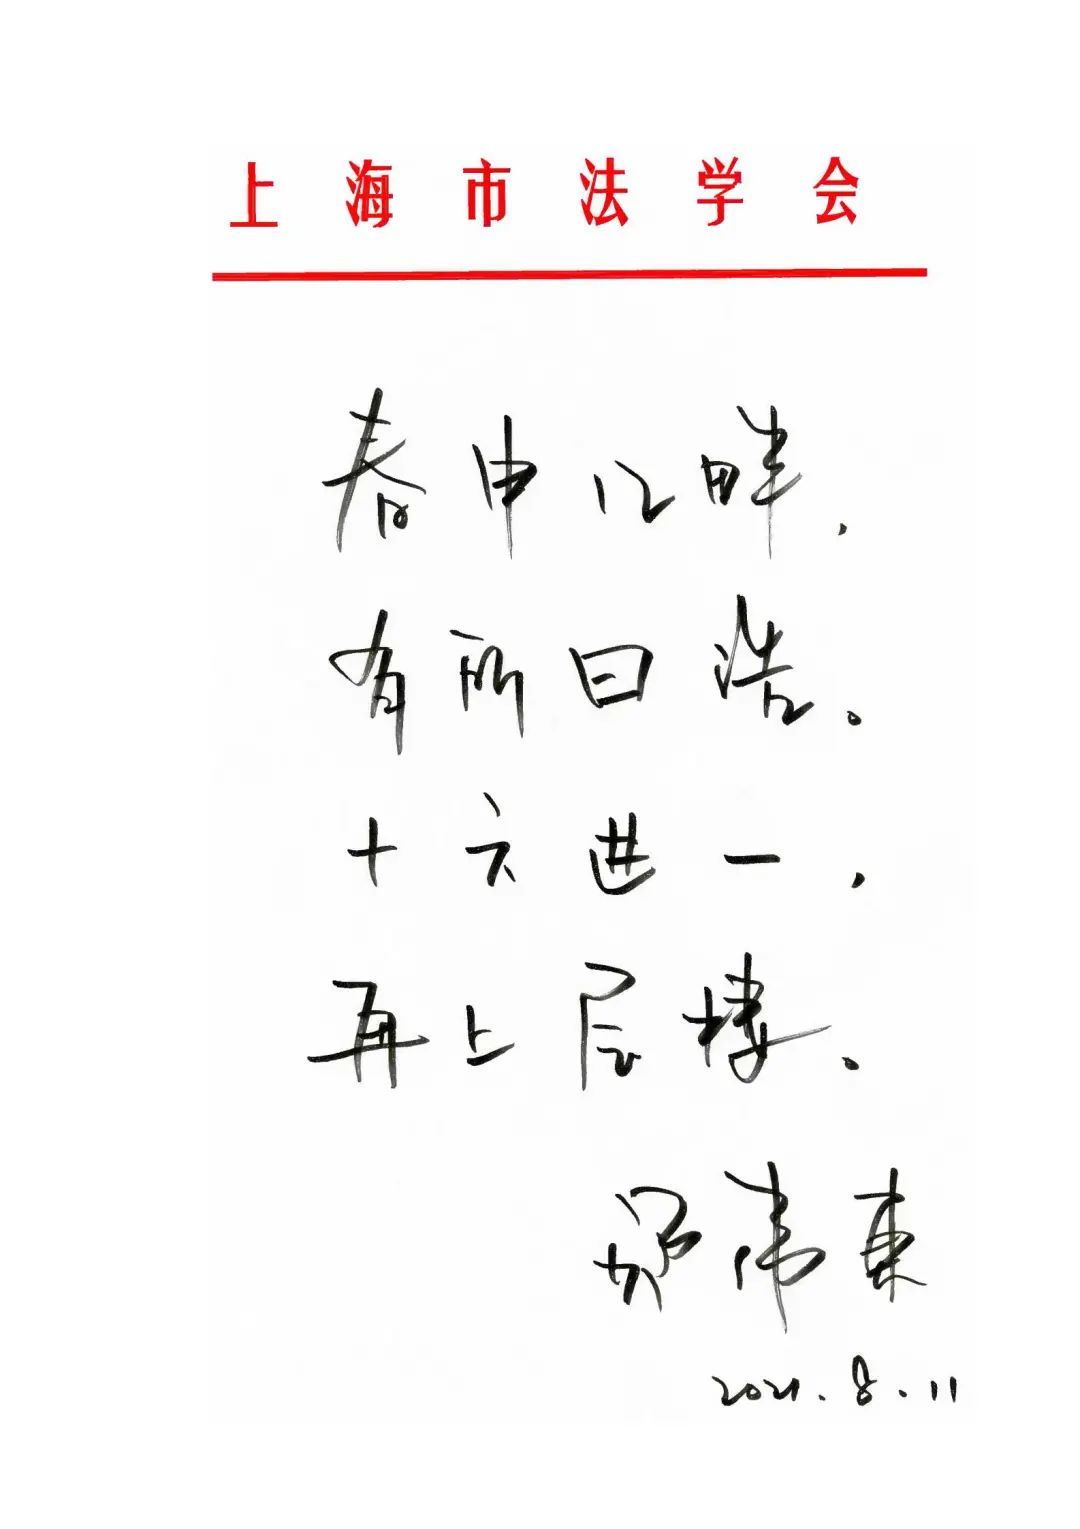 上海市法学会
春申江畔,
有所曰浩。
十六进一,
再上层楼。
施伟东
2021.8.11